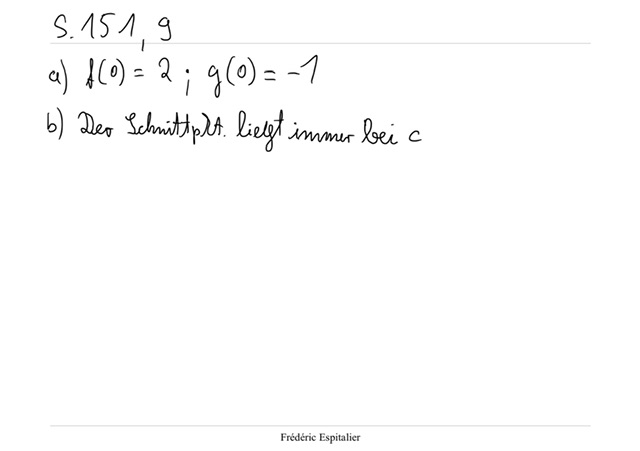 S. 151, 9
a) f(0) = 2 ; g(0) = -1
b) Der Schnittpkt. liegt immer bei c
Frédéric Espitalier